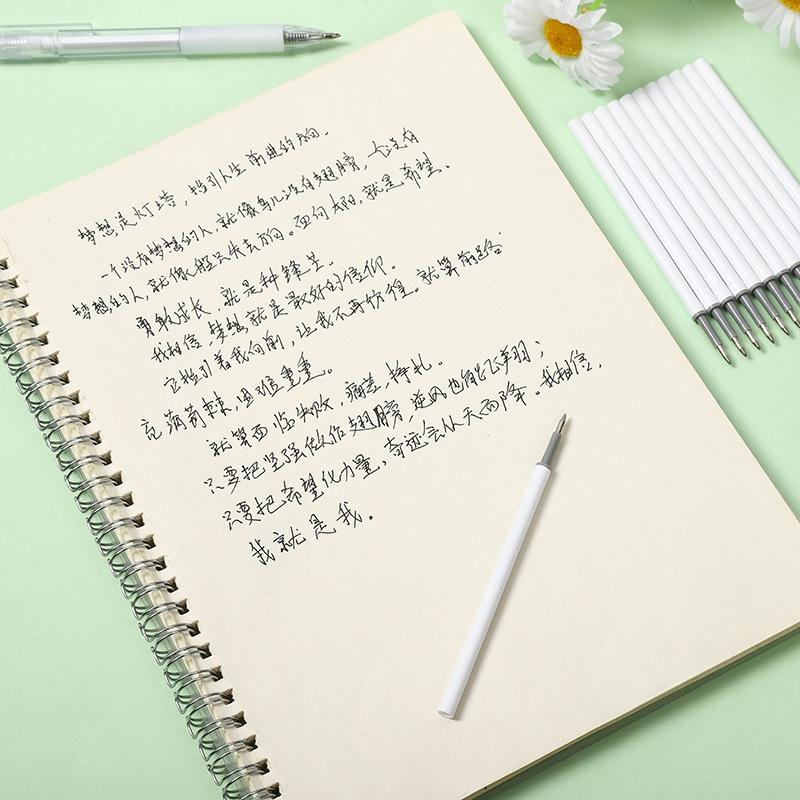 梦想是灯塔，指引人生前进的方向。
一个没有梦想的人，就像鸟儿没有翅膀，一个没有
梦想的人，就像船只失去方向。面向太阳，就是希望。
勇敢成长，就是种锋芒。
我相信，梦想就是最好的信仰。
它指引着我向前，让我不再彷徨。就算前途
充满荆棘，困难重重。
就算面临失败，痛楚，挣扎。
只要把坚强做作翅膀，逆风也能飞翔；
只要把希望化力量，奇迹会从天而降。我相信，
我就是我。